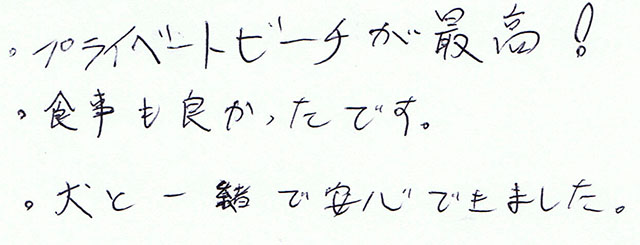 。プライベートビーチが最高!
。食事も良かったです。
。犬と一緒で安心できました。